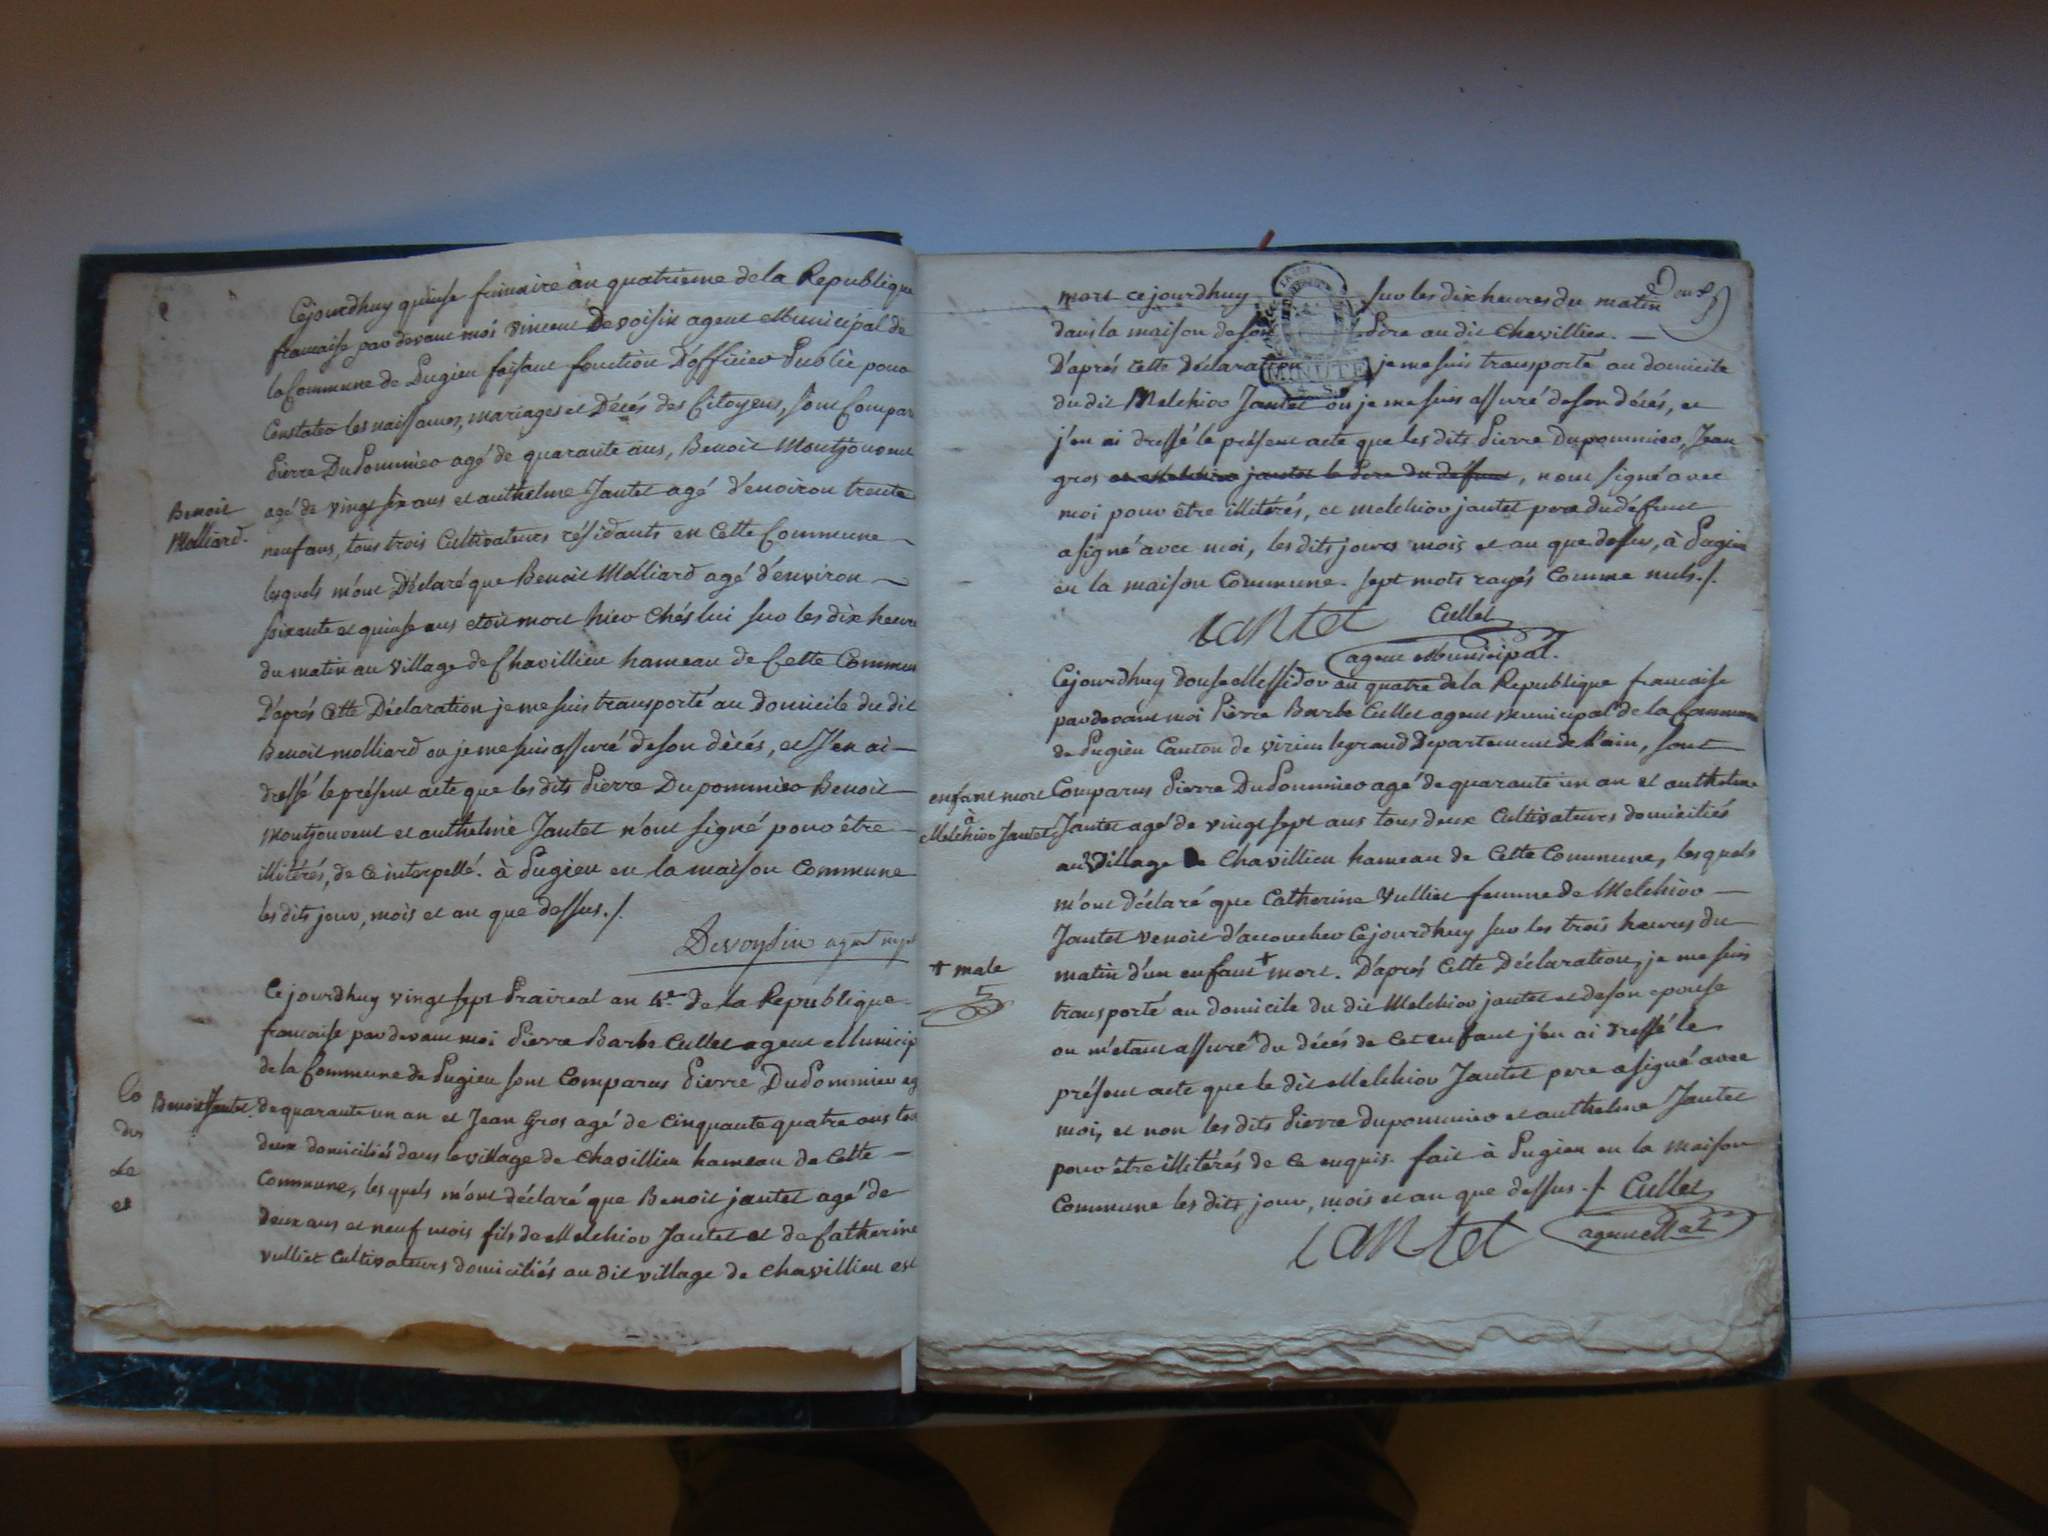 Cejourdhuy quinse frimaire an quatrieme de la Republique
francaise par devant moi vincent Devoisin agent Municipal de
la Commune de Pugieu faisant fonction D'officier Public pour
Constater les naissances, mariages et Décés des Citoyens, sont Compar
Pierre DuPommier agé de quarante ans, Benoit Montjouvent
agé de vingt six ans et anthelme Jantet agé d'enoiron trente
neuf ans, tous trois Cultivateurs résidants en Cette Commune
lesquels m'ont Déclaré que Benoit Molliard agé d'environ
soixante et quinse ans etoit mort hier Chés lui sur les dix heures
du matin au village de Chavillieu hameau de Cette Commun
D'aprés Cette Déclaration je me suis transporté au Domicile du dit
Benoit molliard ou je me suis assuré de son décés, et J'en ai
dressé le présent acte que les dits Pierre Dupommier Benoit
Montjouvent et anthelme Jantet n'ont signé pour être
illitérés, de ce interpellé. à Pugieu en la maison Commune
les dits jour, mois et an que dessus ./.
Benoit
Molliard.
Devoysin agent mpal
Cejourdhuy vingt sept Praireal an 4.e de la Republique
francaise par devant moi Pierre Barbe Cullet agent Municip
de la Commune de Pugieu sont Comparus Pierre DuPommier ag
de quarante un an et Jean Gros agé de Cinquante quatre ans tou
deux domiciliés dans le village de Chavillieu hameau de Cette
Commune, les quels m'ont déclaré que Benoit jantet agé de
deux ans et neuf mois fils de Melchior Jantet et de Catherine
vulliet Cultivateurs domiciliés au dit village de Chavillieu est
Benoit Jantet.
Co
du
de
et
Douse
mort cejourdhuy sur les dix heures du matin
dans la maison de son Pere au dit Chavillieu.
MINUTE
D'aprés cette Déclaration je me suis transporté au domicile
du dit Melchior Jantet ou je me suis assuré de son décés, et
j'en ai dressé le présent acte que les dits Pierre Dupommier, Jean
gros et Melchior jantet le Pere du défunt, n'ont signé avec
moi pour être illitérés, et melchior jantet pere du défunt
a signé avec moi, les dits jours mois et an que dessus, à Pugieu
en la maison Commune. sept mots rayés Comme nuls ./.
Jantet Cullet
agent Municipál.
Cejourdhuy douse Messidor an quatre de la Republique francaise
par devant moi Pierre Barbe Cullet agent Municipal de la Commune
de Pugieu Canton de virieu le grand Departement de l'ain, sont
Comparus Pierre DuPommier agé de quarante un an et anthelme
Jantet agé de vingt sept ans tous deux Cultivateurs domiciliés
au village de Chavillieu hameau de Cette Commune, les quels
m'ont déclaré que Catherine Vulliet femme de Melchior
Jantet venoit d'accoucher Cejourdhuy sur les trois heures du
matin d'un enfant + mort. D'aprés Cette Déclaration, je me suis
transporté au domicile du dit Melchior jantet et de son epouse
ou m'etant assuré du décés de Cet enfant j'en ai dressé le
présent acte que le dit Melchior Jantet pere a signé avec
moi, et non les dits Pierre dupommier et anthelme Jantet
pour être illitérés de ce enquis. fait à Pugieu en la maison
Commune les dits jour, mois et an que dessus ./. Cullet
Jantet agent M.al
enfant mort
à
Melchior Jantet
+ male